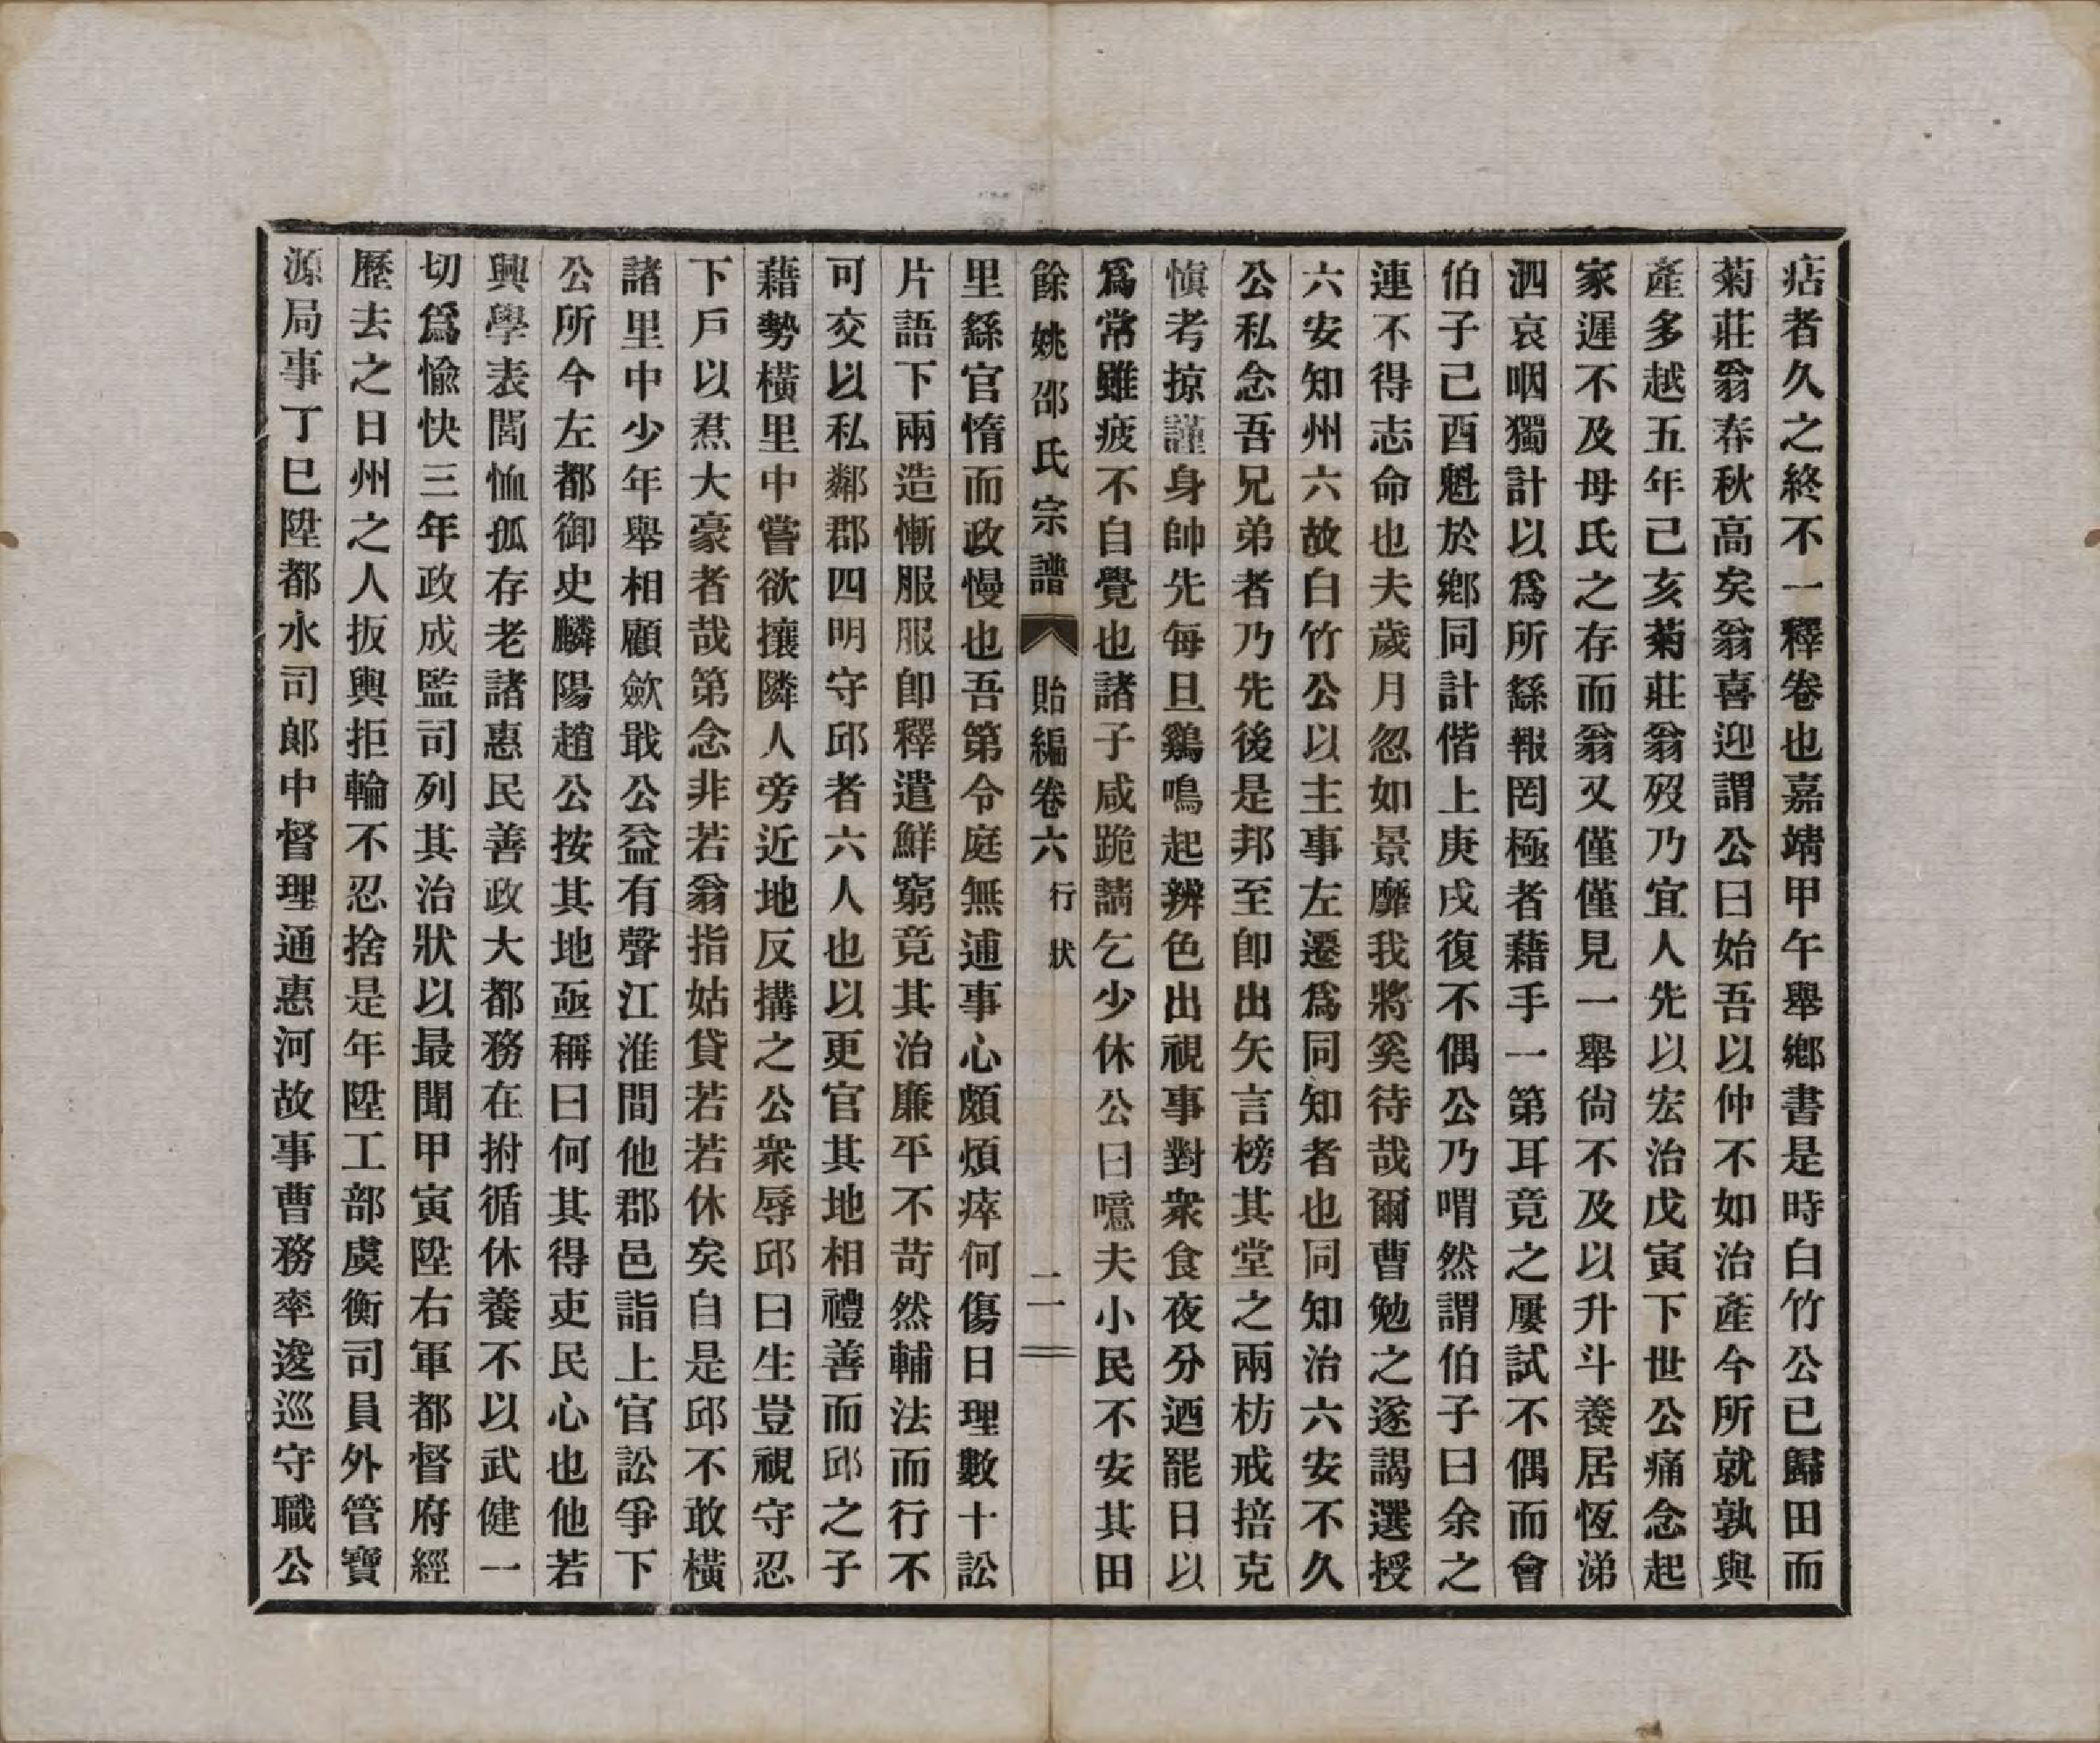 痁者久之終不一釋卷也嘉靖甲午舉鄉書是時白竹公已歸田而
菊莊翁春秋高矣翁喜迎謂公曰始吾以仲不如治產今所就孰與
產多越五年己亥菊莊翁歿乃宜人先以宏治戊寅下世公痛念起
家遲不及母氏之存而翁又僅僅見一舉尙不及以升斗養居恆涕
泗哀咽獨計以爲所繇報罔極者藉手一第耳竟之屢試不偶而會
伯子己酉魁於鄉同計偕上庚戌復不偶公乃喟然謂伯子曰余之
連不得志命也夫歲月忽如景靡我將奚待哉爾曹勉之遂謁選授
六安知州六故白竹公以主事左遷爲同知者也同知治六安不久
公私念吾兄弟者乃先後是邦至卽出矢言榜其堂之兩枋戒掊克
愼考掠謹身帥先每旦鷄鳴起辨色出視事對衆食夜分迺罷日以
爲常雖疲不自覺也諸子咸跪請乞少休公曰噫夫小民不安其田
餘姚邵氏宗譜 貽編卷六 行狀 二
里繇官惰而政慢也吾第令庭無逋事心頗煩瘁何傷日理數十訟
片語下兩造慚服服卽釋遣鮮窮竟其治廉平不苛然輔法而行不
可交以私鄰郡四明守邱者六人也以更官其地相禮善而邱之子
藉勢橫里中嘗欲攘隣人旁近地反搆之公衆辱邱曰生豈視守忍
下戶以㷅大豪者哉第念非若翁指姑貸若若休矣自是邱不敢橫
諸里中少年舉相顧歛戢公益有聲江淮間他郡邑詣上官訟爭下
公所今左都御史麟陽趙公按其地亟稱曰何其得吏民心也他若
興學表閭恤孤存老諸惠民善政大都務在拊循休養不以武健一
切爲愉快三年政成監司列其治狀以最聞甲寅陞右軍都督府經
歷去之日州之人扳輿拒輪不忍捨是年陞工部虞衡司員外管寶
源局事丁巳陞都水司郞中督理通惠河故事曹務率逡巡守職公